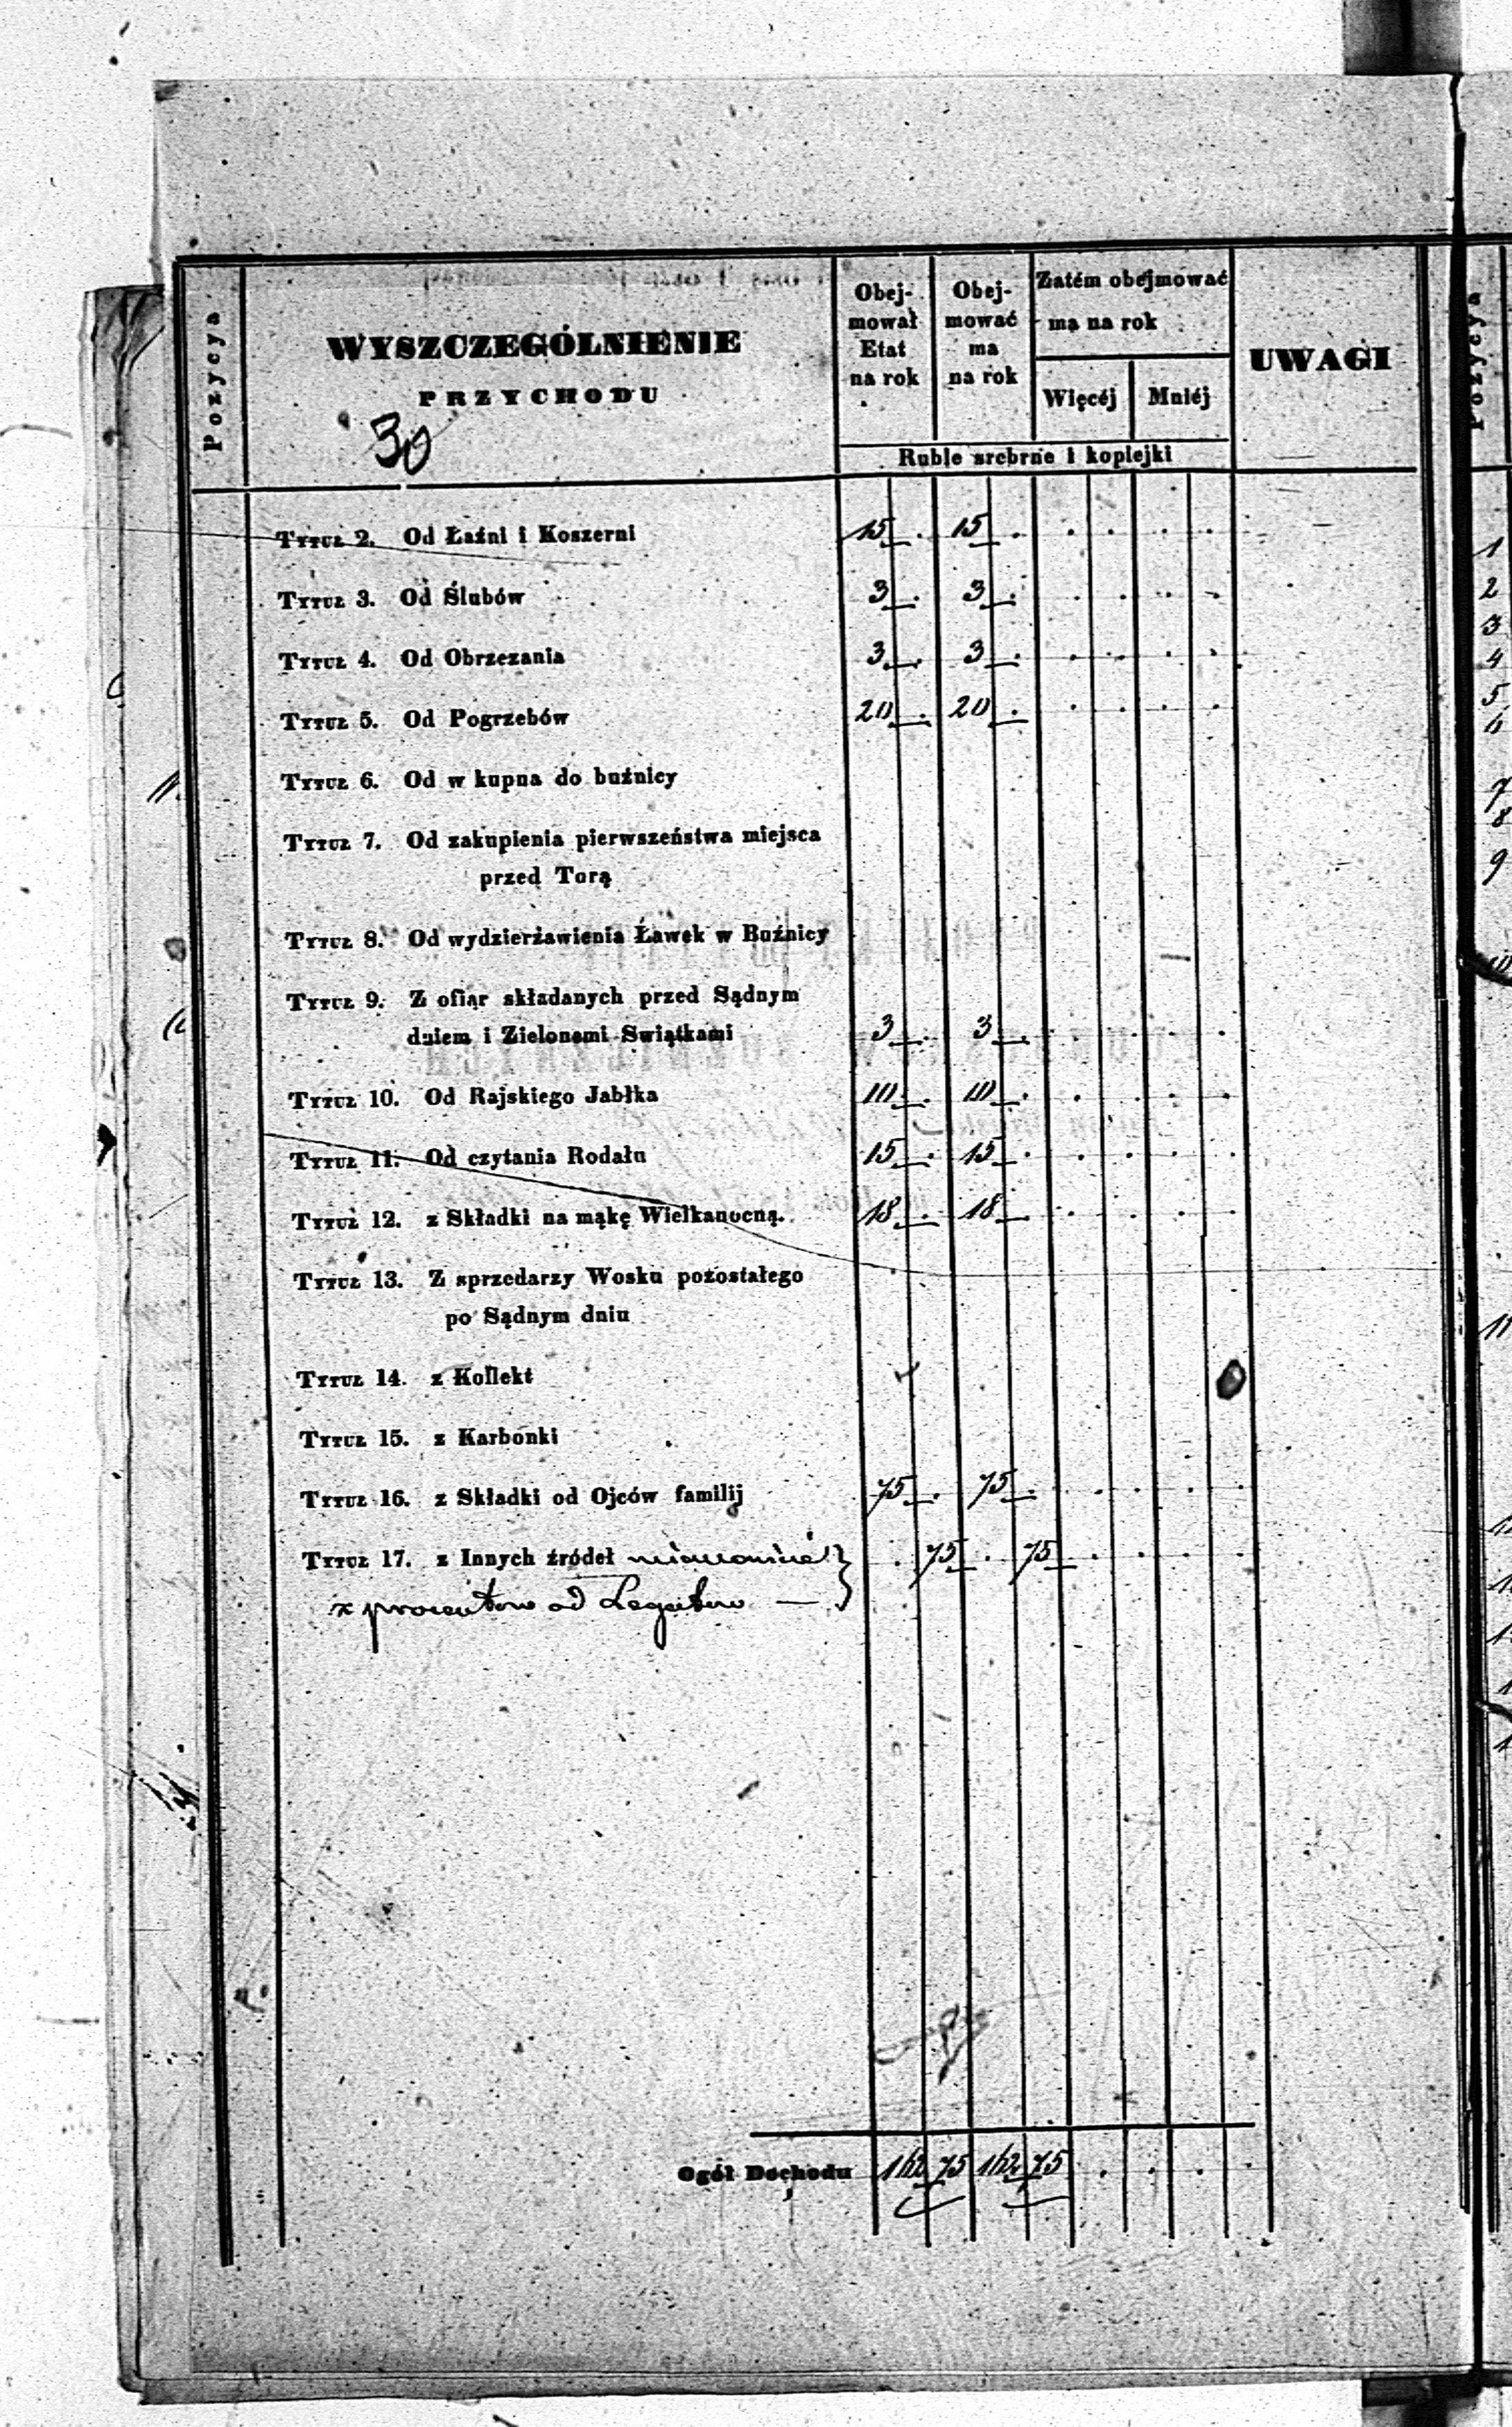 Pozycya
WYSZCZEGÓLNIENIE
PRZYCHODU
30
Obej-
mował
Etat
na rok
Obej-
mować
ma
na rok
Zatém obejmować
ma na rok
Więcéj Mniéj
Ruble srebrne i kopiejki
UWAGI
Tytuł 2. Od Łaźni i Koszerni 15 15
Tytuł 3. Od Ślubów 3 3
Tytuł 4. Od Obrzezania 3 3
Tytuł 5. Od Pogrzebów 20 20
Tytuł 6. Od w kupna do buźnicy
Tytuł 7. Od zakupienia pierwszeństwa miejsca
przed Torą
Tytuł 8. Od wydzierżawienia Ławek w Buźnicy
Tytuł 9. Z ofiar składanych przed Sądnym
dniem i Zielonemi Swiątkami 3 3
Tytuł 10. Od Rajskiego Jabłka 10 10
Tytuł 11. Od czytania Rodału 15 15
Tytuł 12. z Składki na mąkę Wielkanocną. 18 18
Tytuł 13. Z sprzedarzy Wosku pozostałego
po Sądnym dniu
Tytuł 14. z Kollekt
Tytuł 15. z Karbonki
Tytuł 16. z Składki od Ojców familij 75 75
Tytuł 17. z Innych źródeł mianowicie 75 75
z procentow od Legatow —
Ogół Dochodu 162 75 162 75
Pozycya
1
2
3
4
5
6
7
8
9